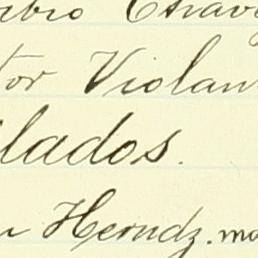 ribio Chav
tor Violan
ilados.
Herndz. ma